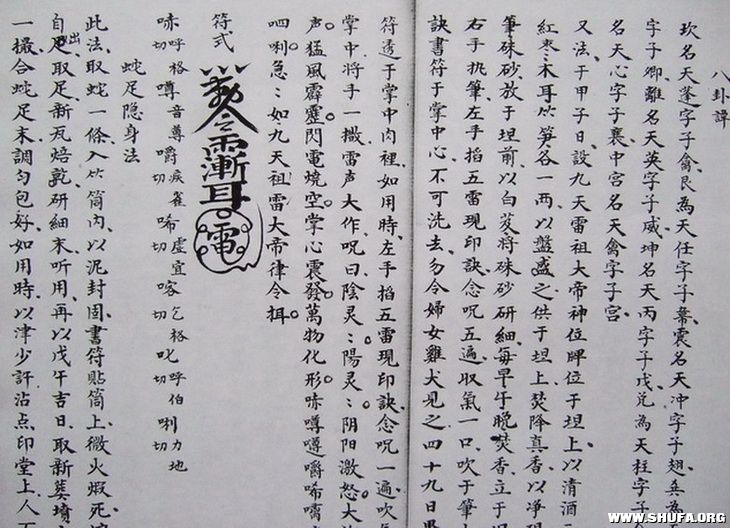 八卦諱
坎名天蓬字子禽艮為天任字子震名天冲字子翅巽為
字子卿離名天英字子威坤名天丙字子戊兌為天柱字子
名天心字子襄中宮名天禽字子宮
又法于甲子日設九天雷祖大帝神位牌位于坦上以清酒
紅枣木耳竹笋各一两以盤盛之供于坦上焚降真香以净
筆硃砂放于坦前以白芨将硃砂研細每早午晚焚香立于
右手执筆左手掐五雷現印訣念咒五遍取氣一口吹于筆
訣書符于掌中心不可洗去勿令婦女雞犬見之四十九日
符透于掌中肉裡如用時左手掐五雷現印訣念咒一遍吹
掌中将手一撒雷声大作咒曰陰灵:陽灵:阴阳激怒大
声猛風霹靂閃電燒空掌心震發萬物化形噂嚼唏
唎急:如九天祖雷大帝律令
符式
呼格切噂音尊嚼疾雀切唏虚宜切喀乞格切叱呼伯切唎力地切
蛇足隐身法
此法取蛇一條入竹筒内以泥封固書符贴筒上微火煆死
自出足取足新瓦焙乾研細末听用再以戊午吉日取新葬墳
一撮合蛇足末調匀包好如用時以津少許沾点印堂上人
WWW.SHUFA.ORG